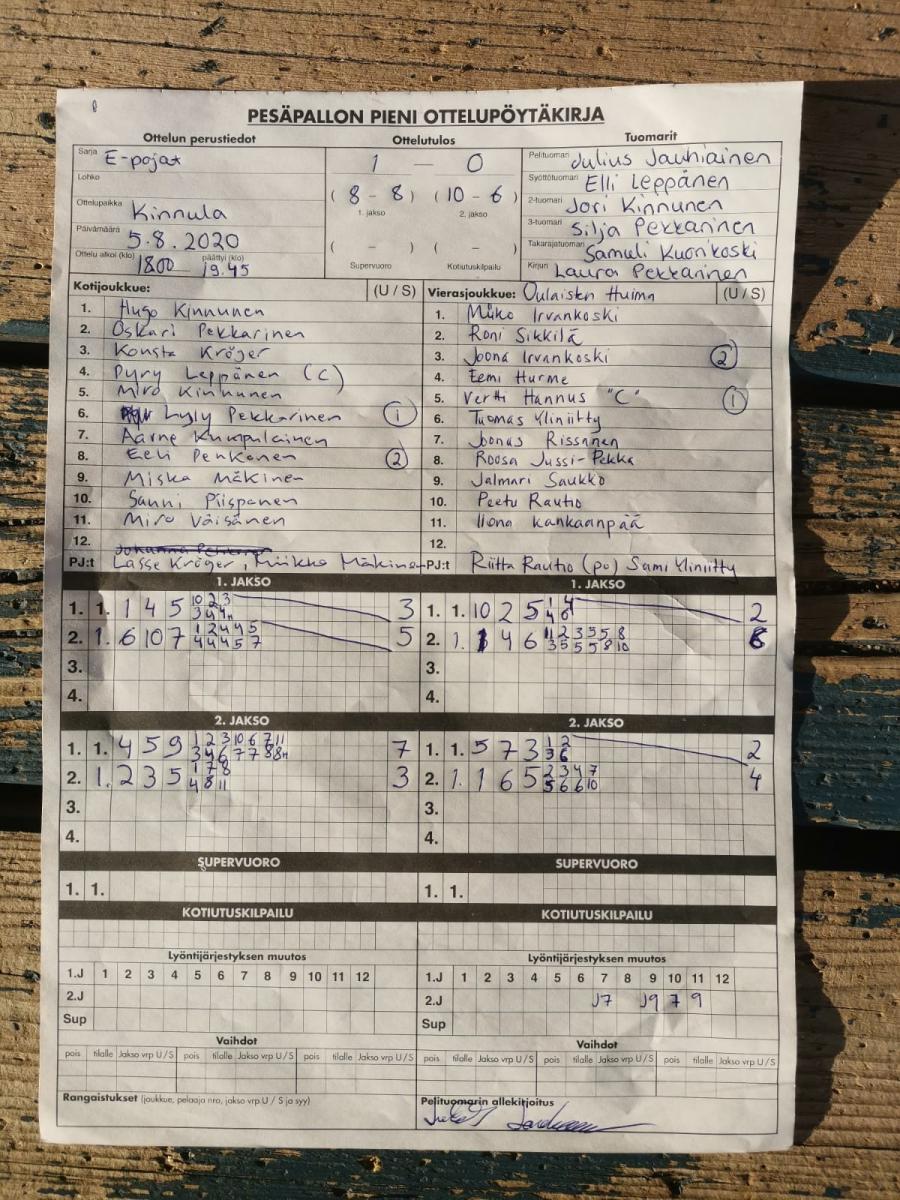 PESÄPALLON PIENI OTTELUPÖYTÄKIRJA
Ottelun perustiedot Ottelutulos Tuomarit
Sarja E-pojat
Lohko
Ottelupaikka Kinnula
Päivämäärä 5.8.2020
Ottelu alkoi (klo) 1800 päättyi (klo) 19.45
1 — 0
(8 - 8) (10 - 6)
1. jakso 2. jakso
( - ) ( - )
Supervuoro Kotiutuskilpailu
Pelituomari Julius Jauhiainen
Syöttötuomari Elli Leppänen
2-tuomari Jori Kinnunen
3-tuomari Silja Pekkarinen
Takarajatuomari Samuli Kuorikoski
Kirjuri Laura Pekkarinen
Kotijoukkue: (U / S)
1. Hugo Kinnunen
2. Oskari Pekkarinen
3. Konsta Kröger
4. Pyry Leppänen (C)
5. Miro Kinnunen
6. Lyly Pekkarinen 1
7. Aarne Kumpulainen
8. Eeli Penkonen 2
9. Miska Mäkinen
10. Sanni Piispanen
11. Miro Väisänen
12.
PJ:t Lasse Kröger, Miikka Mäkinen
Vierasjoukkue: Oulaisten Huima (U / S)
1. Miko Irvankoski
2. Roni Sikkilä
3. Joona Irvankoski 2
4. Eemi Hurme
5. Vertti Hannus "C" 1
6. Tuomas Yliniitty
7. Joonas Rissanen
8. Roosa Jussi-Pekka
9. Jalmari Saukko
10. Peetu Rautio
11. Ilona Kankaanpää
12.
PJ:t Riitta Rautio (po) Sami Yliniitty
1. JAKSO 1. JAKSO
1. 1. 1 4 5 3
2. 1. 6 10 7 5
3.
4.
1. 1. 10 2 5 2
2. 1. 1 4 6 6
3.
4.
2. JAKSO 2. JAKSO
1. 1. 4 5 9 7
2. 1. 2 3 5 3
3.
4.
1. 1. 5 7 3 2
2. 1. 1 6 5 4
3.
4.
SUPERVUORO SUPERVUORO
1. 1. 1. 1.
KOTIUTUSKILPAILU KOTIUTUSKILPAILU
Lyöntijärjestyksen muutos Lyöntijärjestyksen muutos
1.J 1 2 3 4 5 6 7 8 9 10 11 12 1.J 1 2 3 4 5 6 7 8 9 10 11 12
2.J 2.J J7 J9 7 9
Sup Sup
Vaihdot Vaihdot
pois tilalle Jakso vrp U / S pois tilalle Jakso vrp U / S pois tilalle Jakso vrp U / S pois tilalle Jakso vrp U / S pois tilalle Jakso vrp U / S pois tilalle Jakso vrp U / S
Rangaistukset (joukkue, pelaaja nro, jakso vrp U / S ja syy) Pelituomarin allekirjoitus